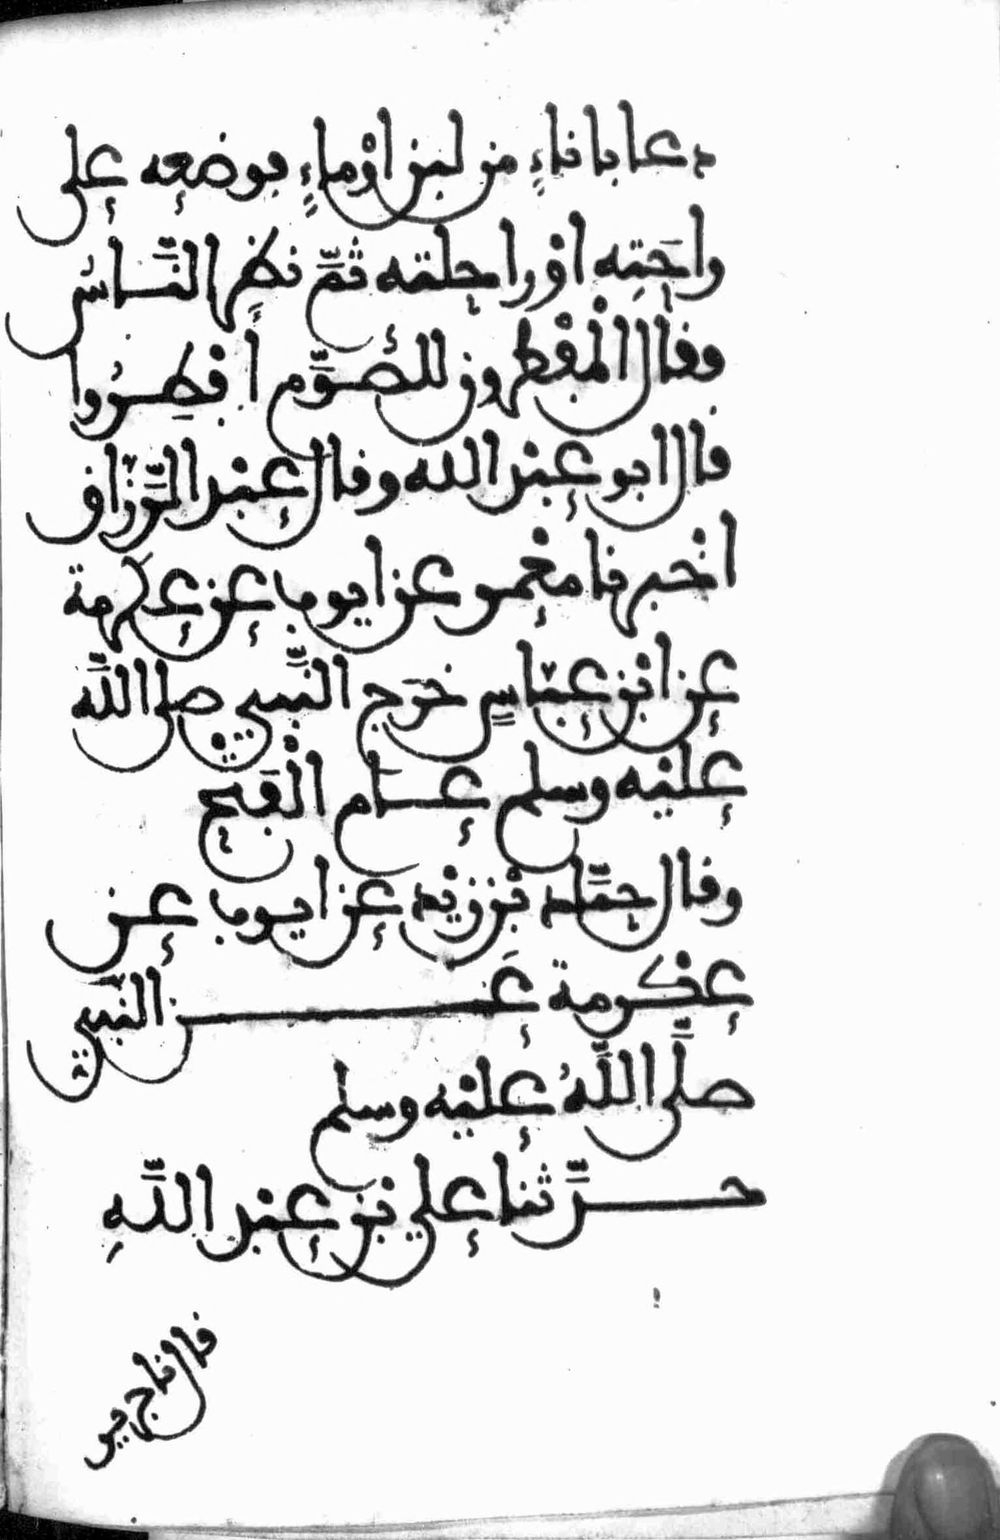 دعا باناءٍ من لبن اوْ ماءٍ فوضعه على
راحَتِه اوْ راحلته ثُمَّ نظر النَّاسُ
وفال الْمُفْطرون للصُّوَّم أَفْطِرُوا
فال ابو عبْد الله وفال عبْد الرَّزَّاف
اخْبرنا معْمر عن ايوب عن عكرمة
عن ابْن عبَّاسٍ خرَج النَّبيي صلى اللَّه
علَيْه وسلم عَام الْفَتح
وفال حمَّاد بْن زيْد عن ايوب عن
عكْرمة عَن النَّبي
صلَّى اللَّهُ عليْه وسلم
حدَّثنا علي بْن عبْد اللَّهِ
فال نا جرير